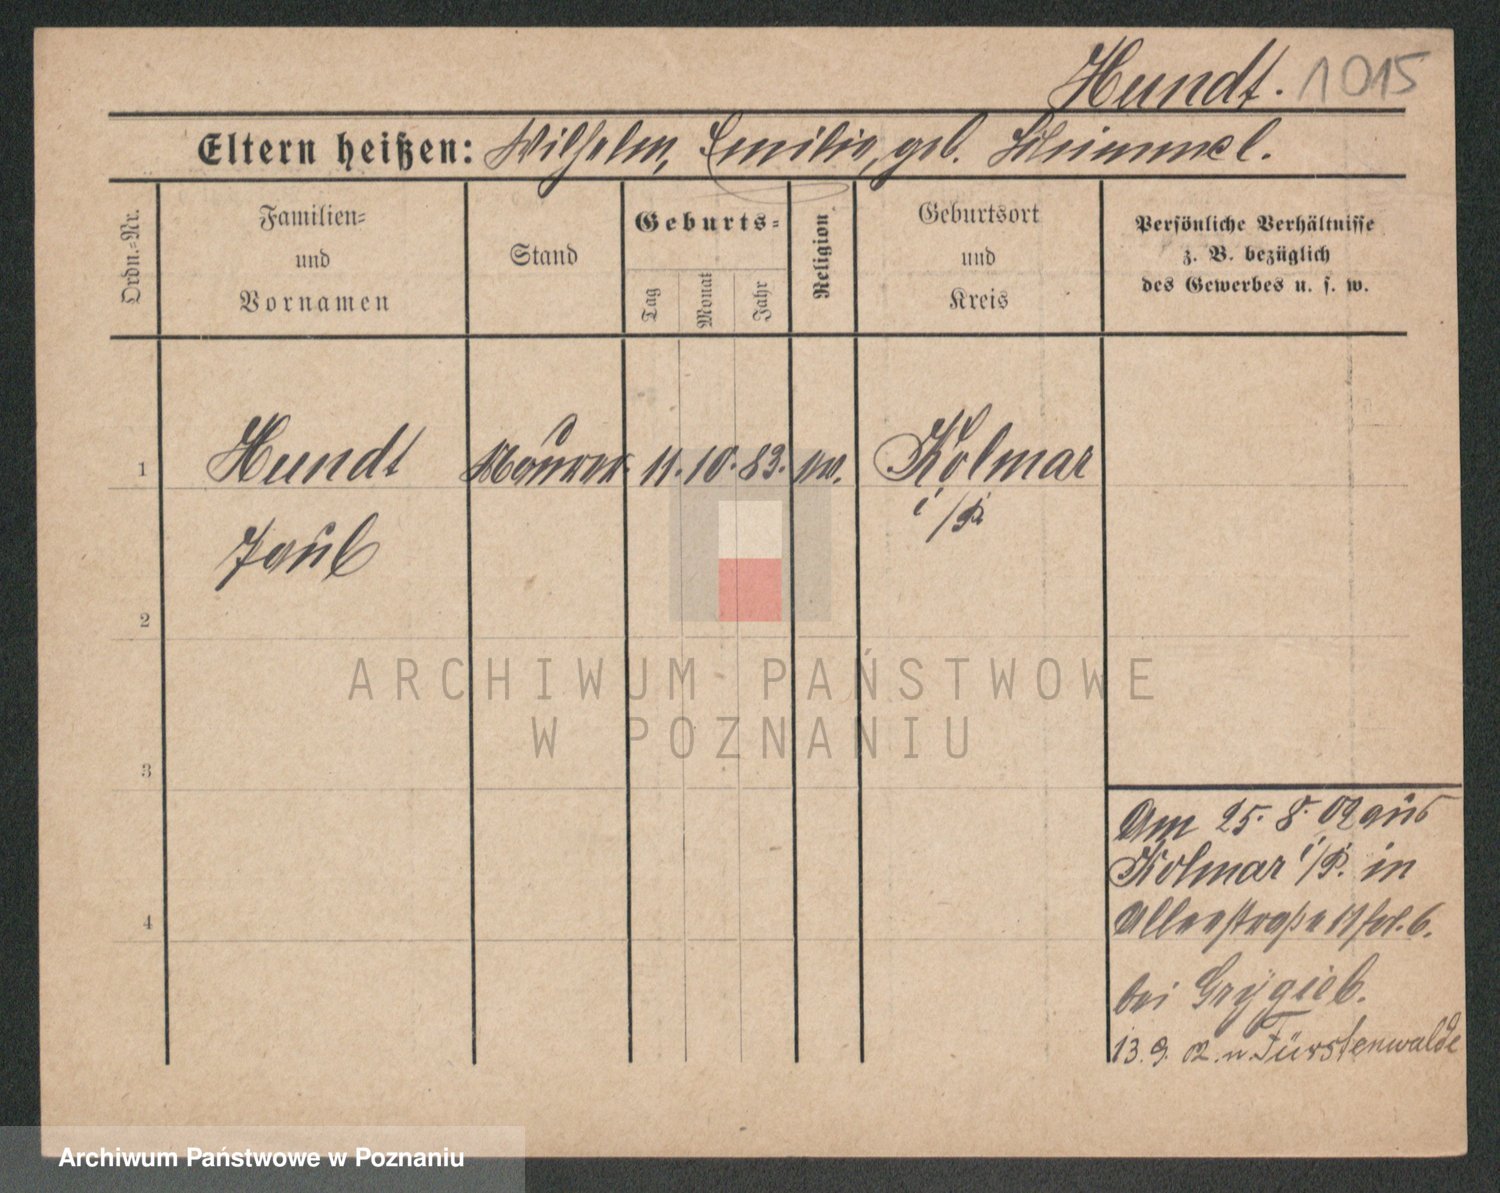 Hundt. 1015
Eltern heißen: Wilhelm, Emilie, geb. Schimmel.
Ordn.=Nr.
Familien=
und
Vornamen
Stand
Geburts=
Tag
Monat
Jahr
Religion
Geburtsort
und
Kreis
Persönliche Verhältnisse
z. B. bezüglich
des Gewerbes u. s. w.
1 Hundt Maurer 11. 10. 83. ev. Kolmar
i/P
Paul
2
3
4
Am 25. 8. 02 aus
Kolmar i/P. in
6.
bei Grygiel.
13. 9. 02. n. Fürstenwalde
ARCHIWUM PAŃSTWOWE
W POZNANIU
Archiwum Państwowe w Poznaniu